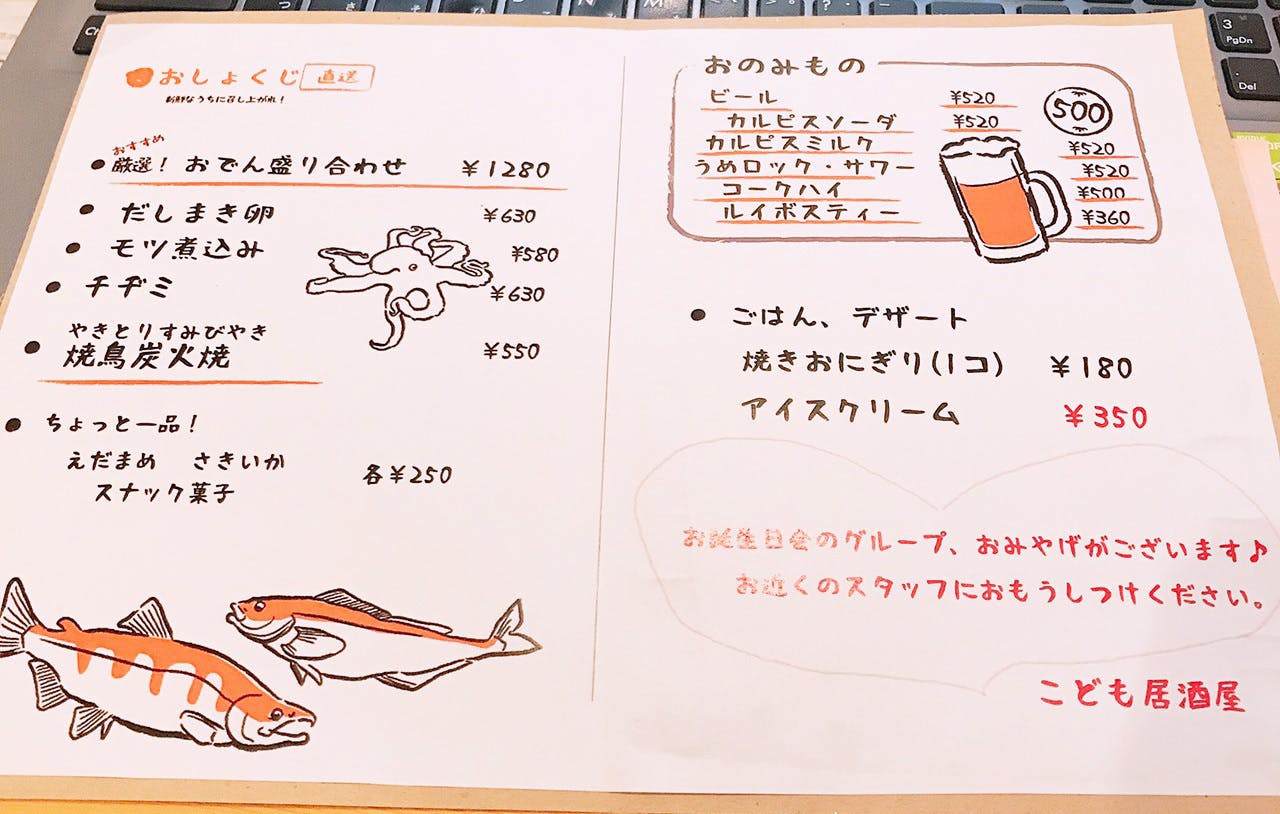 おしょくじ 直送
新鮮なうちに召し上がれ！
おすすめ
● 厳選！ おでん盛り合わせ ¥1280
● だしまき卵 ¥630
● モツ煮込み ¥580
● チヂミ ¥630
やきとりすみびやき
● 焼鳥炭火焼 ¥550
● ちょっと一品！
えだまめ さきいか
スナック菓子 各¥250
おのみもの
ビール ¥520
カルピスソーダ ¥520
500
カルピスミルク ¥520
うめロック・サワー ¥520
コークハイ ¥500
ルイボスティー ¥360
● ごはん、デザート
焼きおにぎり(1コ) ¥180
アイスクリーム ¥350
お誕生日会のグループ、おみやげがございます♪
お近くのスタッフにおもうしつけください。
こども居酒屋
3
PgDn
Del